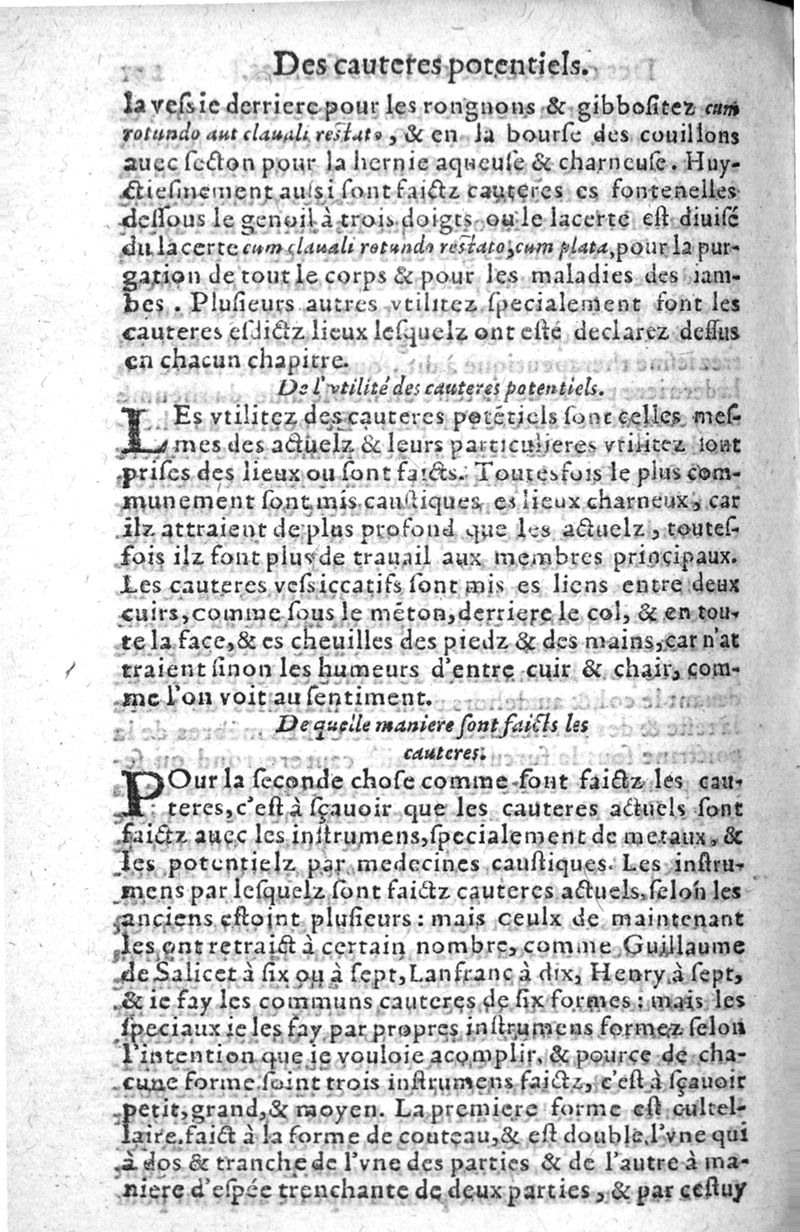 Des cauteres potentiels.
la vessie derriere pour les rongnons & gibbositez cum
rotundo aut clauali restato, & en la bourse des couillons
auec secton pour la hernie aqueuse & charneuse. Huy-
ctiesmement aussi sont faictz cauteres es fontenelles
dessous le genoil à trois doigts ou le lacerte est diuisé
du lacerte cum clauali rotundo restato, cum plata, pour la pur-
gation de tout le corps & pour les maladies des iam-
bes. Plusieurs autres vtilitez specialement font les
cauteres esdictz lieux lesquelz ont esté declarez dessus
en chacun chapitre.
De l'vtilité des cauteres potentiels.
LEs vtilitez des cauteres potētiels sont celles mes-
mes des actuelz & leurs particulieres vtilitez sont
prises des lieux ou sont faicts. Toutesfois le plus com-
munement sont mis caustiques es lieux charneux, car
ilz attraient de plus profond que les actuelz, toutes-
fois ilz font plus de trauail aux membres principaux.
Les cauteres vessiccatifs sont mis es liens entre deux
cuirs, comme sous le mēton, derriere le col, & en tou-
te la face, & es cheuilles des piedz & des mains, car n'at
traient sinon les humeurs d'entre cuir & chair, com-
me l'on voit au sentiment.
De quelle maniere sont faicts les
cauteres.
POur la seconde chose comme sont faictz les cau-
teres, c'est à sçauoir que les cauteres actuels sont
faictz auec les instrumens, specialement de metaux, &
les potentielz par medecines caustiques. Les instru-
mens par lesquelz sont faictz cauteres actuels, selon les
anciens estoint plusieurs: mais ceulx de maintenant
les ont retraict à certain nombre, comme Guillaume
de Salicet à six ou à sept, Lanfranc à dix, Henry à sept,
& ie fay les communs cauteres de six formes: mais les
speciaux ie les fay par propres instrumens formez selon
l'intention que ie vouloie acomplir, & pource de cha-
cune forme soint trois instrumens faictz, c'est à sçauoir
petit, grand, & moyen. La premiere forme est cultel-
laire, faict à la forme de couteau, & est double, l'vne qui
à dos & tranche de l'vne des parties & de l'autre à ma-
niere d'espée trenchante de deux parties, & par cestuy